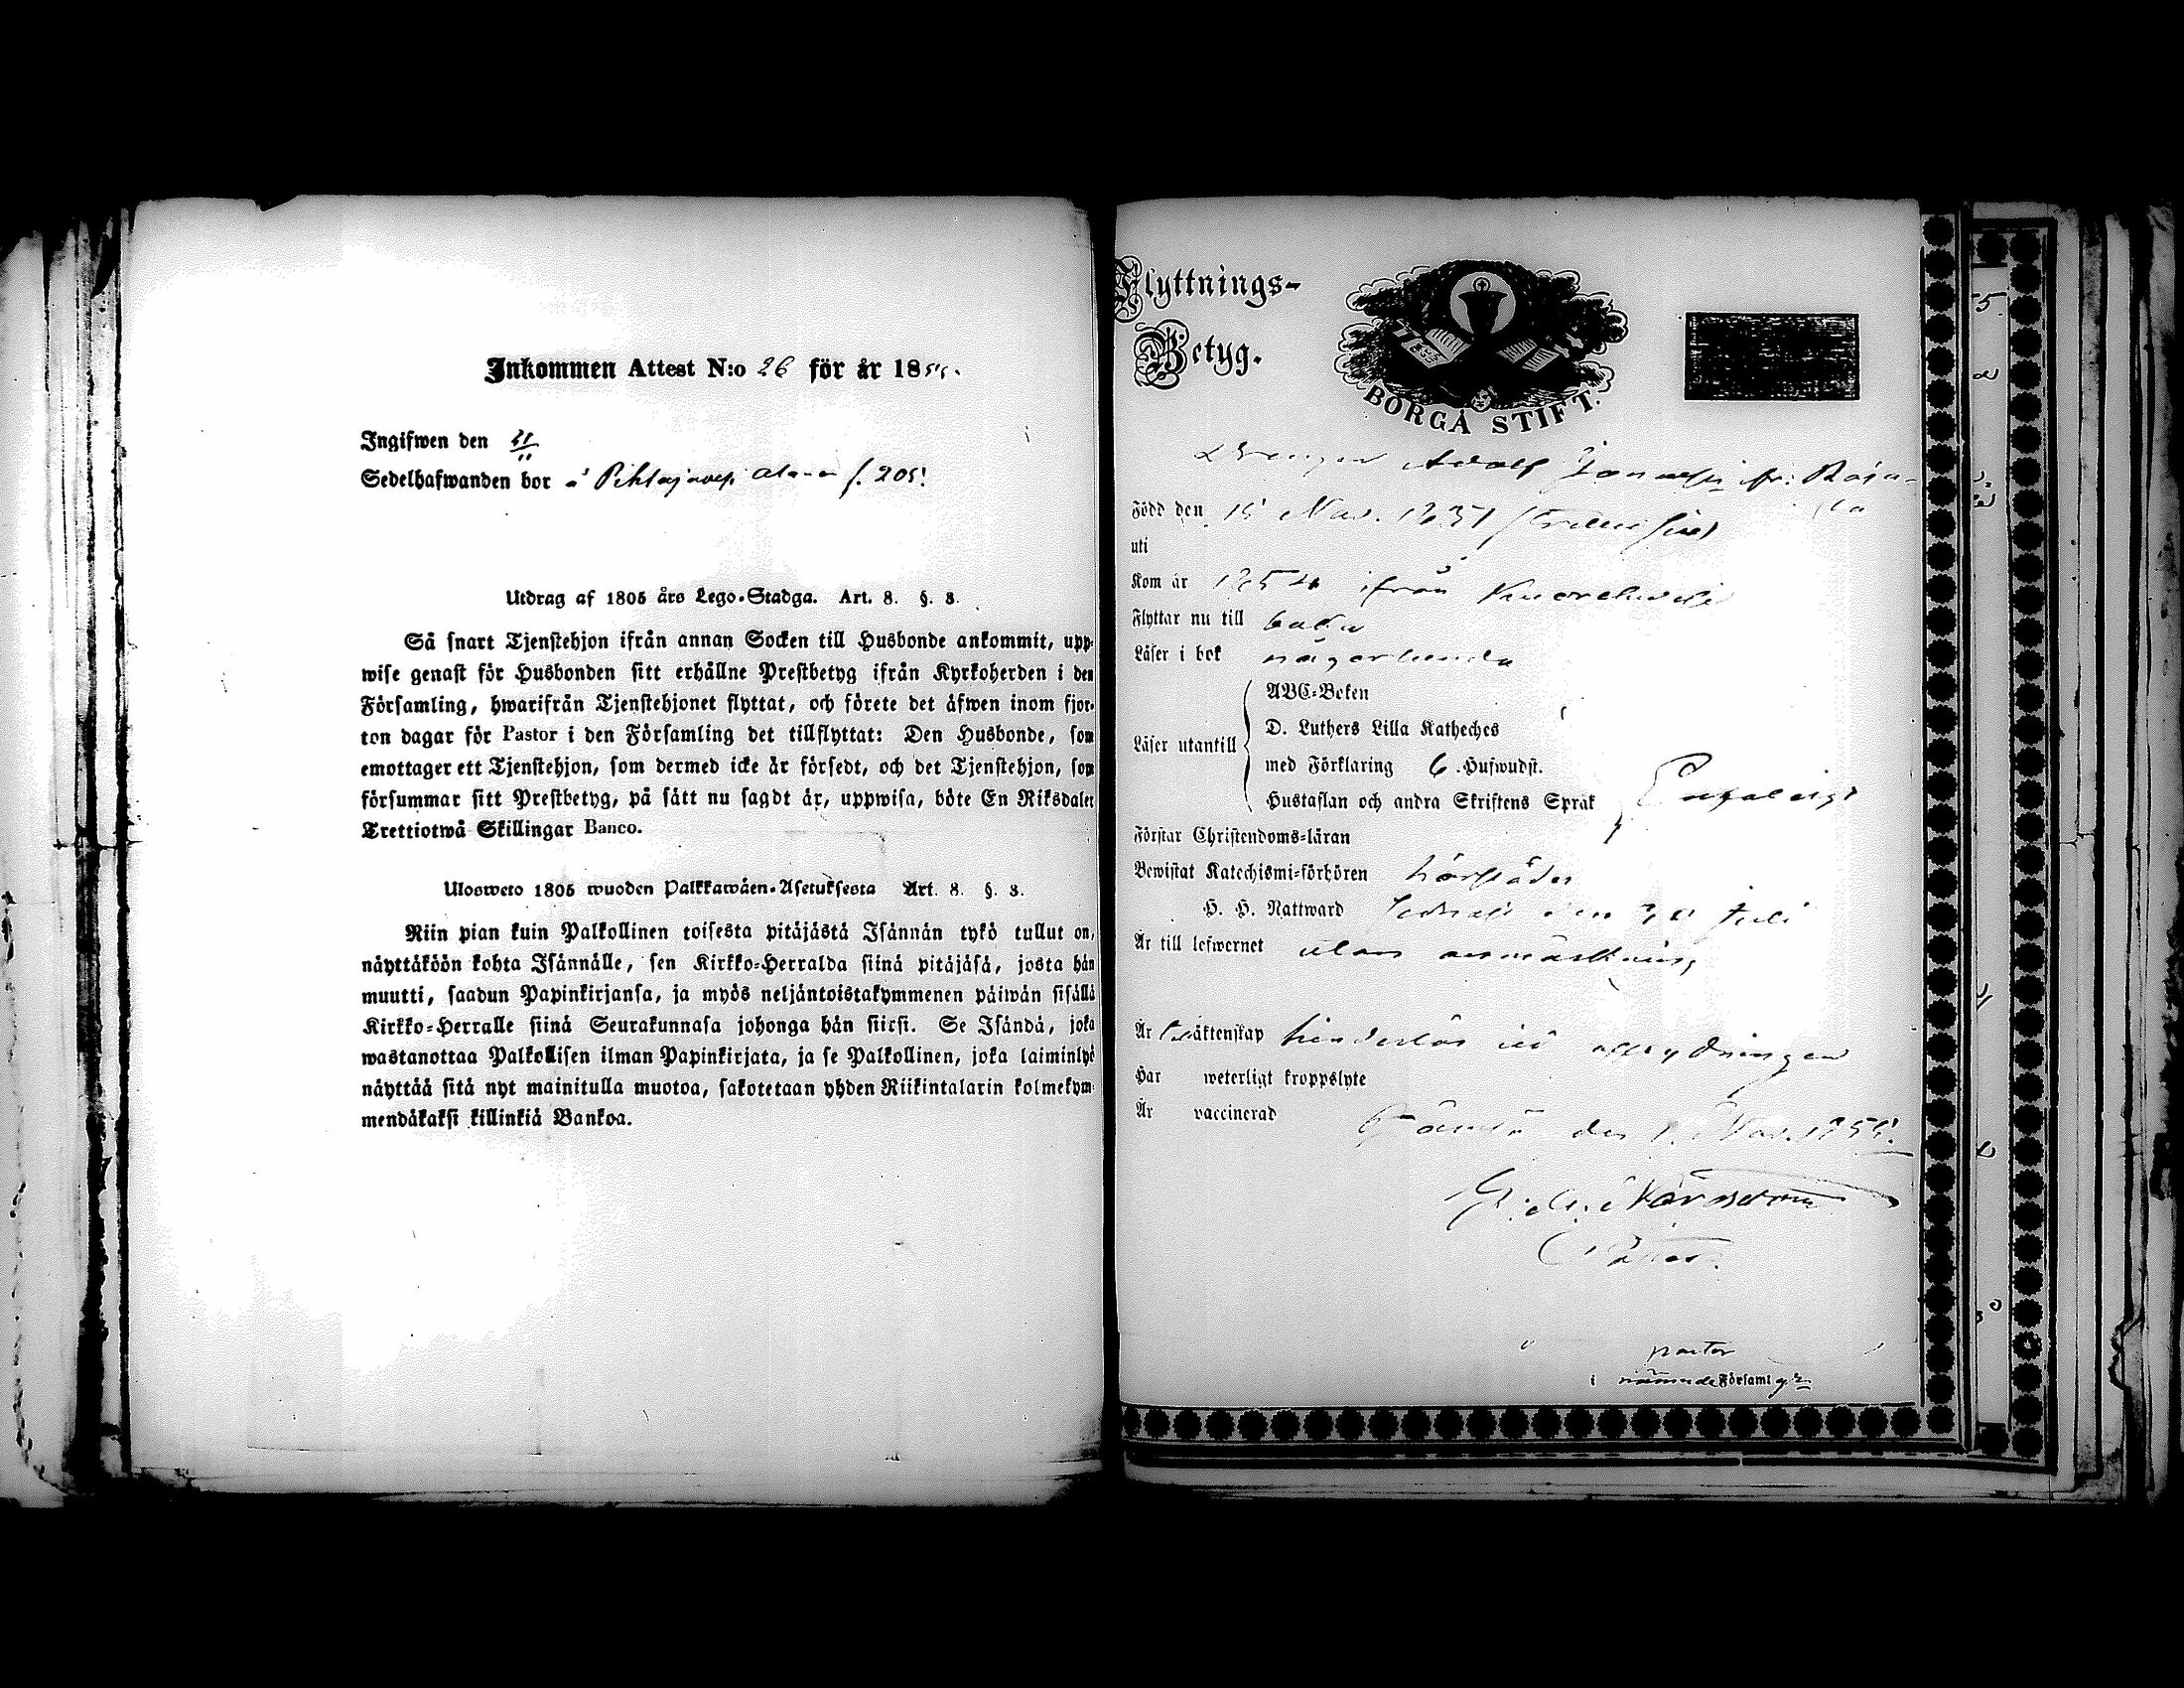 Inkommen Attest N:o 26 för år 1855.
Ingifwen den 11/11
Sedelhafwanden bor å f. 205.
Utdrag af 1805 års Lego-Stadga. Art. 8. §. 8.
Så snart Tjenstehjon ifrån annan Socken till Husbonde ankommit, upp-
wise genast för Husbonden sitt erhållne Prestbetyg ifrån Kyrkoherden i den
Församling, hwarifrån Tjenstehjonet flyttat, och förete det äfwen inom fjor-
ton dagar för Pastor i den Församling det tillflyttat: Den Husbonde, som
emottager ett Tjenstehjon, som dermed icke är försedt, och det Tjenstehjon, som
försummar sitt Prestbetyg, på sätt nu sagdt är, uppwisa, böte En Riksdaler
Trettiotwå Skillingar Banco.
Ulosweto 1805 wuoden Palkkawäen-Asetuksesta Art. 8. §. 8.
Niin pian kuin Palkollinen toisesta pitäjästä Isännän tykö tullut on,
näyttäköön kohta Isännälle, sen Kirkko-Herralda siinä pitäjäsä, josta hän
muutti, saadun Papinkirjansa, ja myös neljäntoistakymmenen päiwän sisällä
Kirkko-Herralle siinä Seurakunnasa johonga hän siirsi. Se Isändä, joka
wastanottaa Palkollisen ilman Papinkirjata, ja se Palkollinen, joka laiminlyö
näyttää sitä nyt mainitulla muotoa, sakotetaan yhden Riikintalarin kolmekym-
mendäkaksi killinkiä Bankoa.
Flyttnings-
Betyg.
BORGÅ STIFT.
Drengen Adolf
Född den 15 Nov. 1831
uti
Kom år 1854 ifrån Kuorehvesi
Flyttar nu till
Läser i bok någorlunda
ABC-Boken
D. Luthers Lilla Katheches
Läser utantill
med Förklaring 6 Hufwudst.
Hustaflan och andra Skriftens Språk
Enfaldigt
Förstår Christendoms-läran
Bewistat Katechismi-förhören
H. H. Nattward den Juli
Är till lefwernet utan anmärkning
Är till äktenskap hinderlös
Har weterligt kroppslyte
Är vaccinerad
den 1. Nov. 1855.
pastor
i nämnde Församl